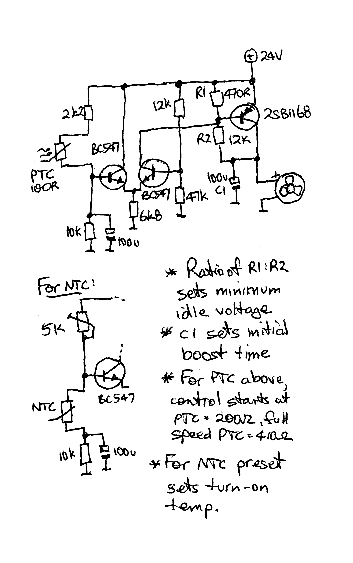 24V
R1
470R
2k2
12k
2SB1168
R2
12k
BC547
BC547
PTC
100R
100u
C1
47k
6k8
10k
100u
For NTC:
5K
BC547
NTC
10k
100u
* Ratio of R1:R2
sets minimum
idle voltage
* C1 sets initial
boost time
* For PTC above,
control starts at
PTC = 200Ω, full
speed PTC = 410Ω
* For NTC preset
sets turn-on
temp.